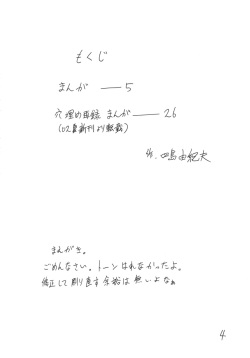 もくじ
まんが —— 5
穴埋め再録 まんが —— 26
(02夏新刊より転載)
作、四島由紀夫
まえがき。
ごめんなさい。トーンはれなかったよ。
修正して刷り直す余裕は無いよなぁ
4